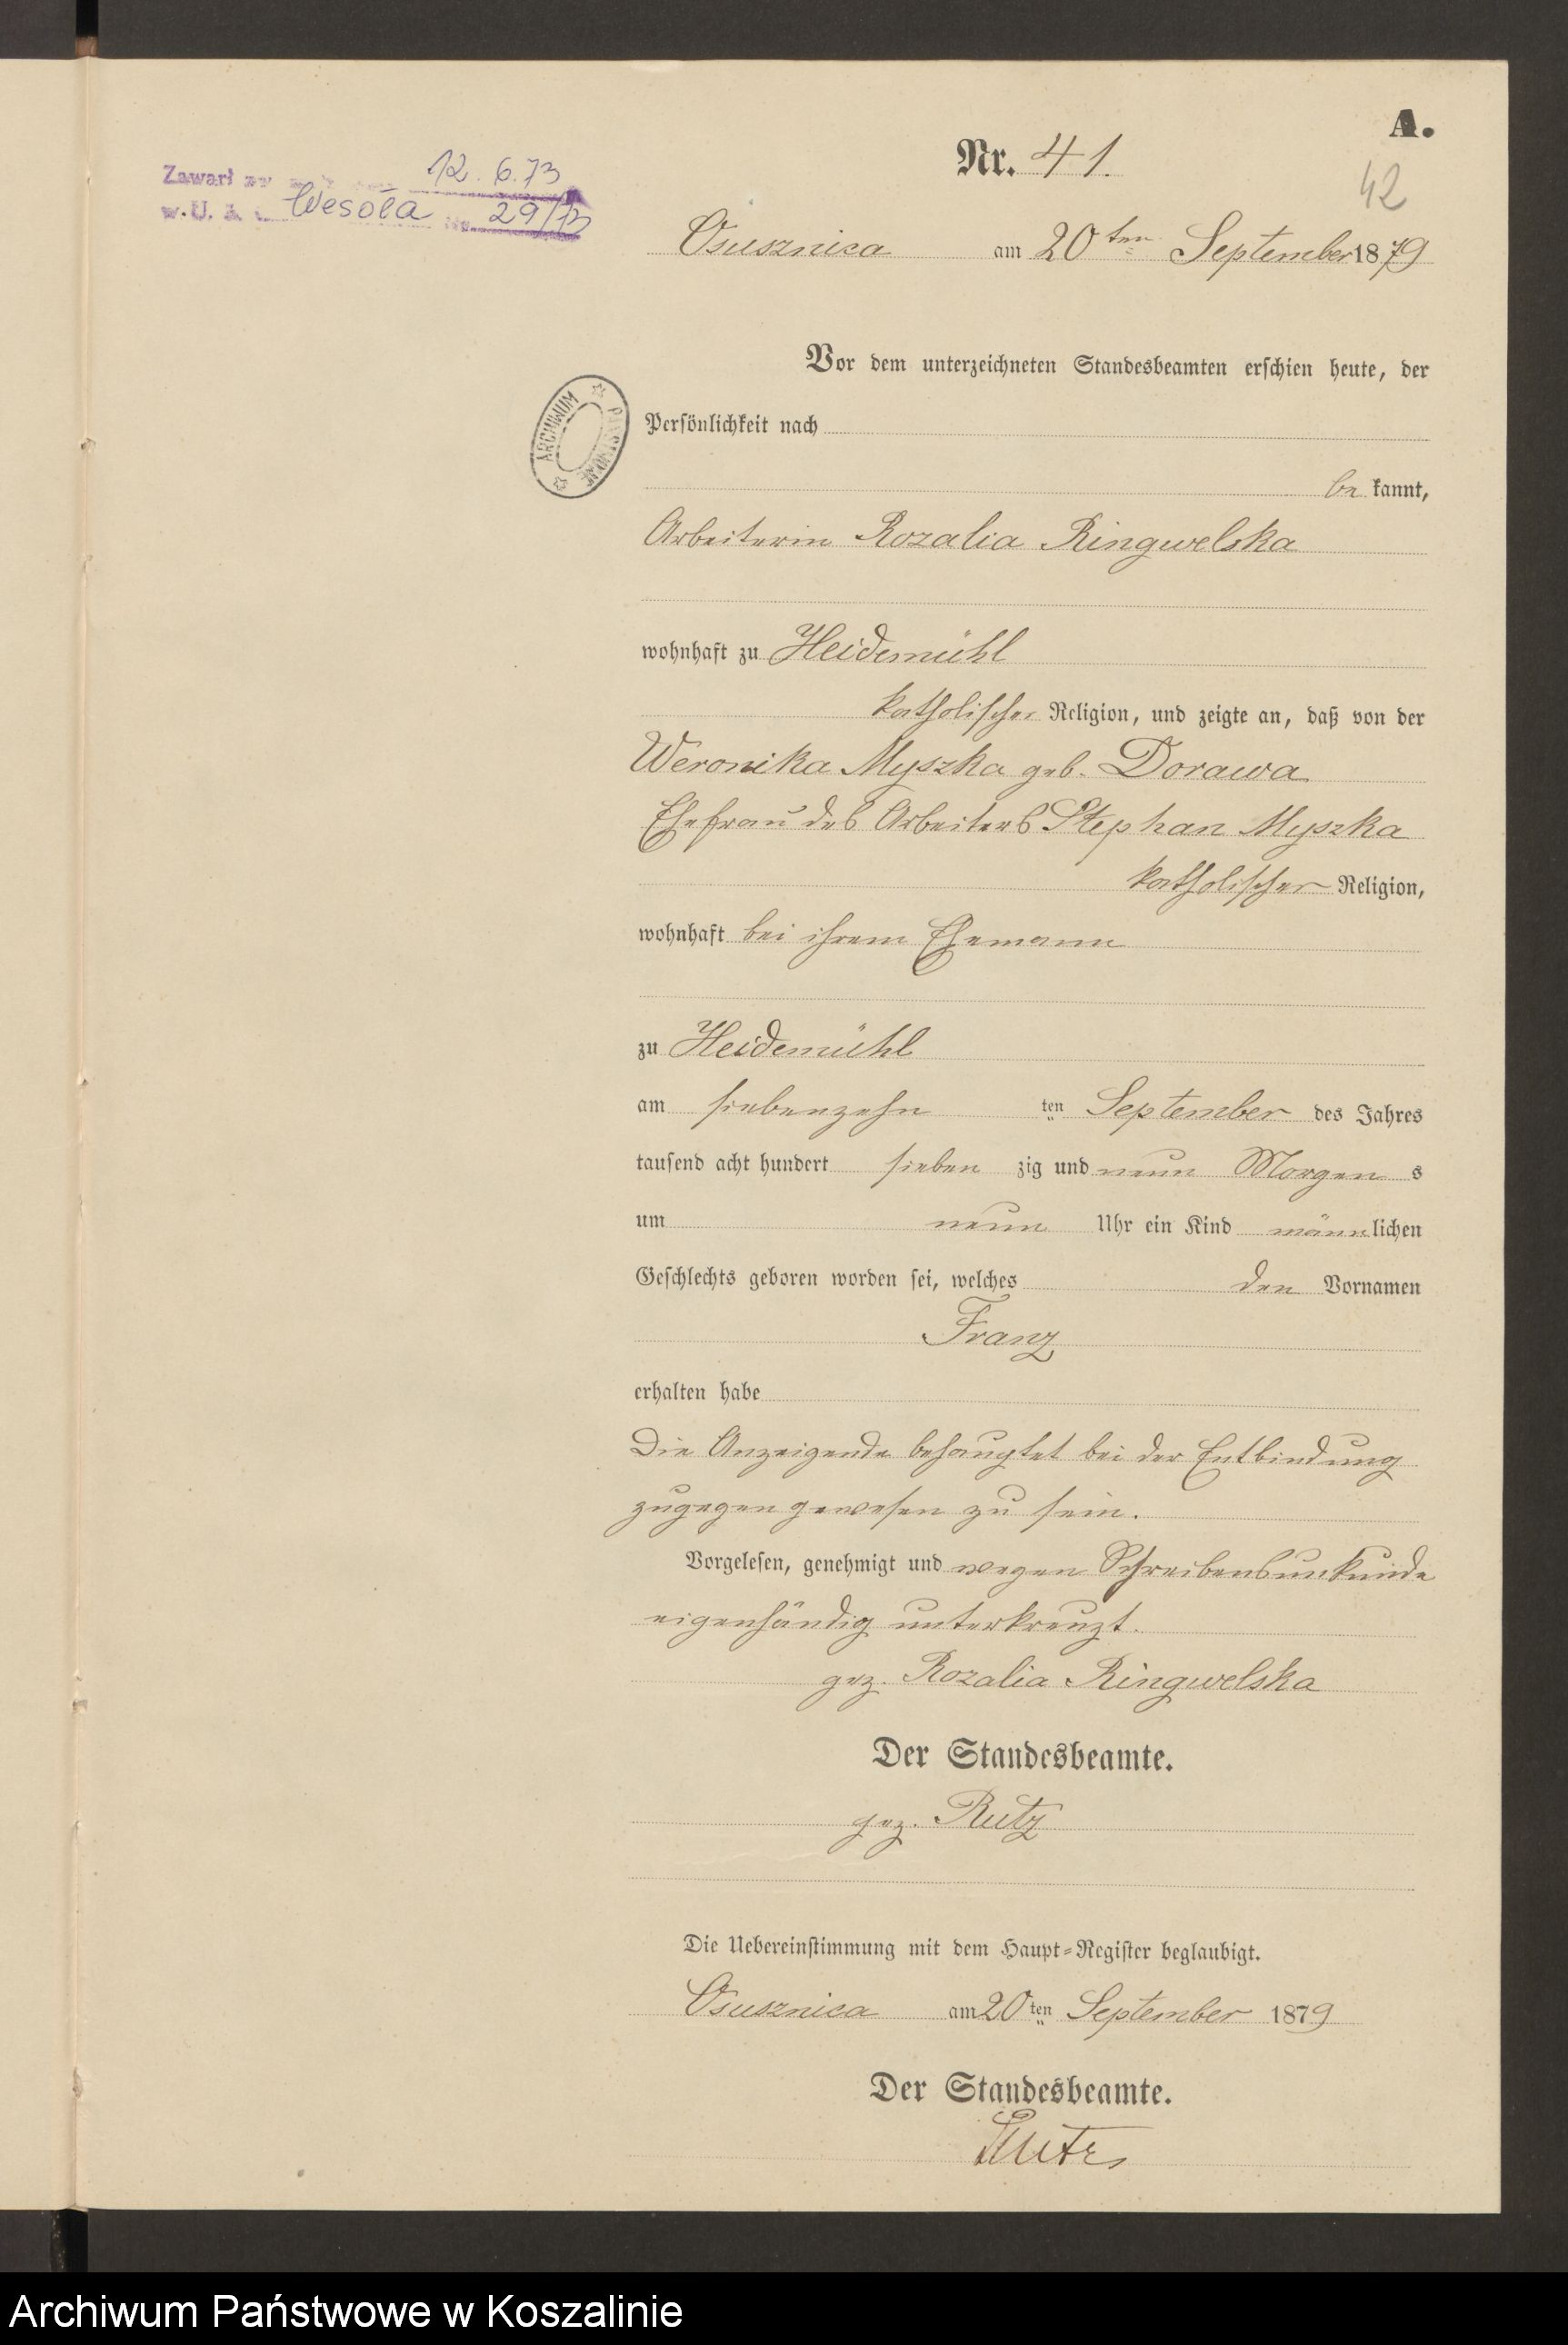 A.
Nr. 41.
42
Zawarł 12. 6. 73
w U. Wesoła 29/73
Osusznica am 20ten September 1879
Vor dem unterzeichneten Standesbeamten erschien heute, der
Persönlichkeit nach
be kannt,
Arbeiterin Rozalia Ringwelska
wohnhaft zu Heidemühl
katholischer Religion, und zeigte an, daß von der
Weronika Myszka geb. Dorawa
Ehefrau des Arbeiters Stephan Myszka
katholischer Religion,
wohnhaft bei ihrem Ehemann
zu Heidemühl
am siebenzehn ten September des Jahres
tausend acht hundert sieben zig und neun Morgen s
um neun Uhr ein Kind männlichen
Geschlechts geboren worden sei, welches den Vornamen
Franz
erhalten habe
Die Anzeigende behauptet bei der Entbindung
zugegen gewesen zu sein.
Vorgelesen, genehmigt und wegen Schreibensunkunde
eigenhändig unterkreuzt.
gez. Rozalia Ringwelska
Der Standesbeamte.
gez. Rutz
Die Uebereinstimmung mit dem Haupt-Register beglaubigt.
Osusznica am 20ten September 1879
Der Standesbeamte.
Rutz
ARCHIWUM
Archiwum Państwowe w Koszalinie